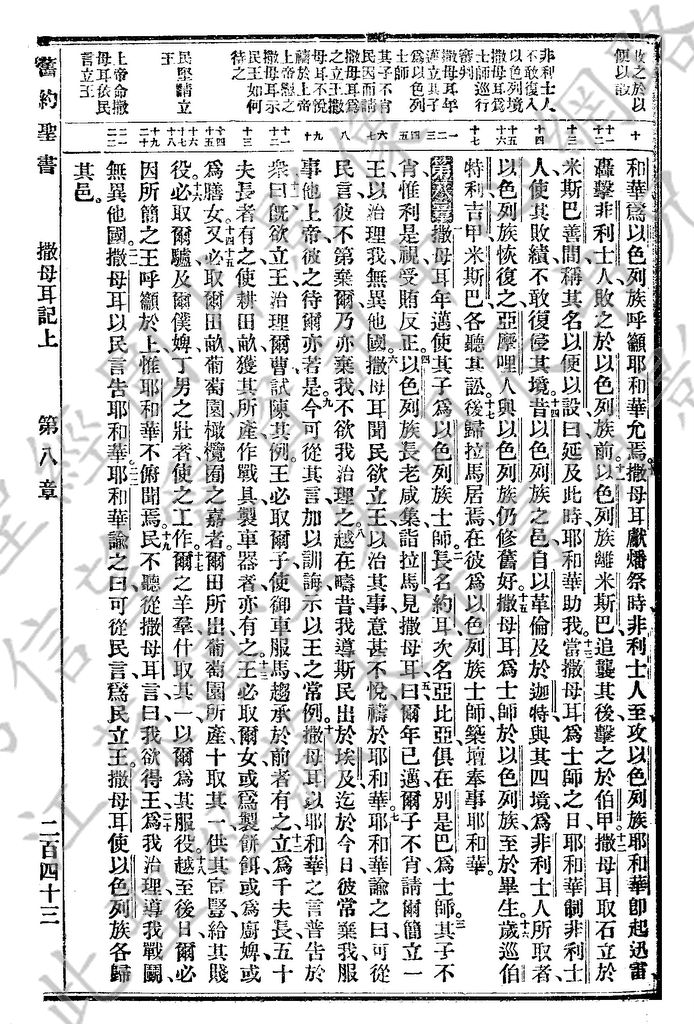 和華爲以色列族呼籲耶和華允焉撒母耳獻燔祭時非利士人至攻以色列族耶和華卽起迅雷
轟擊非利士人敗之於以色列族前以色列族離米斯巴追襲其後擊之於伯甲撒母耳取石立於
米斯巴善間稱其名以便以設曰延及此時耶和華助我當撒母耳爲士師之日耶和華制非利士
人使其敗績不敢復侵其境昔以色列族之邑自以革倫及於迦特與其四境爲非利士人所取者
以色列族恢復之亞摩哩人與以色列族仍修舊好撒母耳爲士師於以色列族至於畢生歲巡伯
特利吉甲米斯巴各聽其訟後歸拉馬居焉在彼爲以色列族士師築壇奉事耶和華
第八章撒母耳年邁使其子爲以色列族士師長名約耳次名亞比亞俱在別是巴爲士師其子不
肖惟利是視受賄反正以色列族長老咸集詣拉馬見撒母耳曰爾年已邁爾子不肖請爾簡立一
王以治理我無異他國撒母耳聞民欲立王以治其事意甚不悅禱於耶和華耶和華諭之曰可從
民言彼不第棄爾乃亦棄我不欲我治理之越在疇昔我導斯民出於埃及迄於今日彼常棄我服
事他上帝彼之待爾亦若是今可從其言加以訓誨示以王之常例撒母耳以耶和華之言普告於
衆曰旣欲立王治理爾曹試陳其例王必取爾子使御車服馬趨承於前者有之立爲千夫長五十
夫長者有之使耕田畝穫其所產作戰具製車器者亦有之王必取爾女或爲製餅餌或爲廚婢或
爲膳女又必取爾田畝葡萄園橄欖囿之嘉者爾田所出葡萄園所產十取其一供其宦豎給其賤
役必取爾驢及爾僕婢丁男之壯者使之工作爾之羊羣什取其一以爾爲其服役越至後日爾必
因所簡之王呼籲於上惟耶和華不俯聞焉民不聽從撒母耳言曰我欲得王爲我治理導我戰鬬
無異他國撒母耳以民言告耶和華耶和華諭之曰可從民言爲民立王撒母耳使以色列族各歸
其邑
舊約聖書 撒母耳記上 第八章 二百四十三